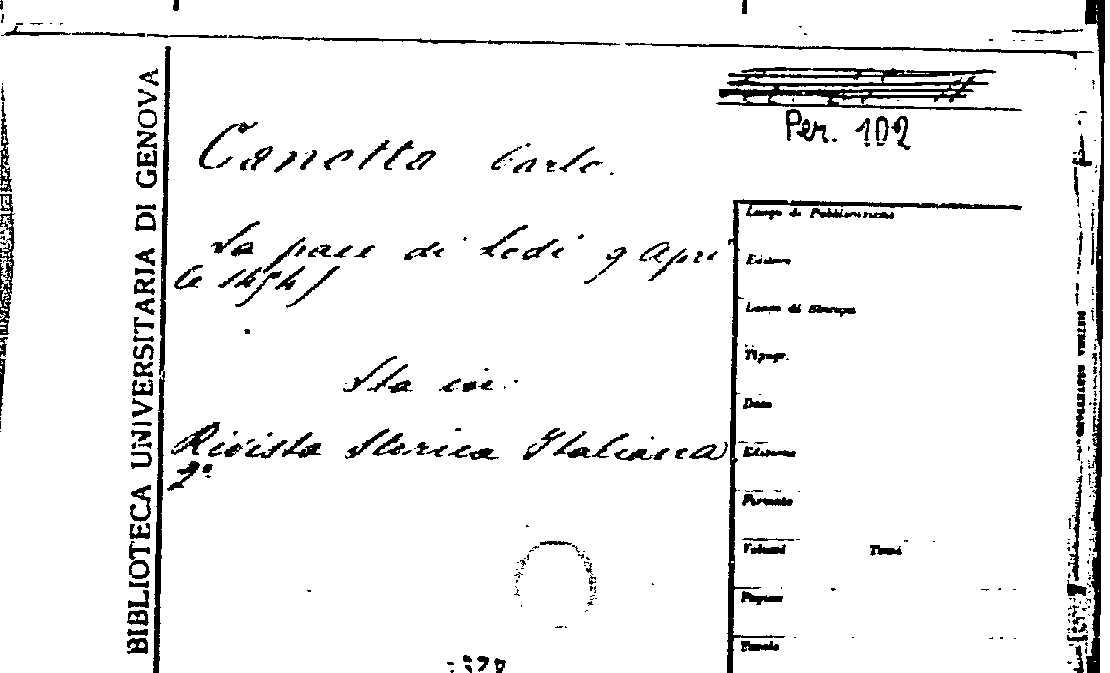 BIBLIOTECA UNIVERSITARIA DI GENOVA
Per. 102
Canetta Carlo.
La pace di Lodi 9 Apri
le 1454)
Sta in:
Rivista Storica Italiana
2°
Luogo di Pubblicazione
Editore
Luogo di Stampa
Tipogr.
Data
Edizione
Formato
Volumi Tomi
Pagine
Tavole